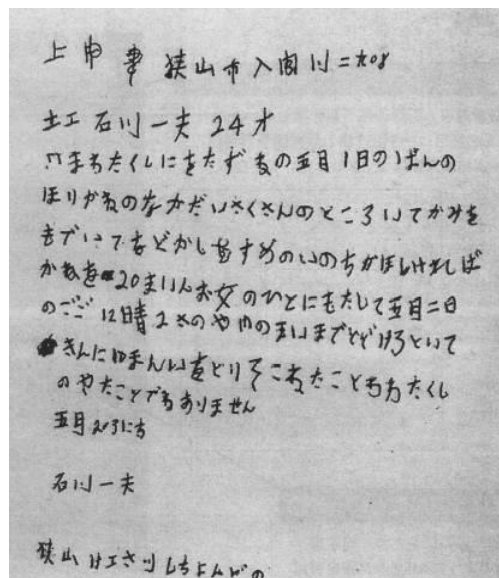 上申書 狭山市入間川二九〇8
土工 石川一夫 24才
はまちたくしにをたずねの五月1日のばんの
ほりかねのなかだいさくさんのところいてかみを
もでいてをどかしむすめのいのちがほしければ
かねを20まいん女のひとにもたして五月二日
のごご12時さのやのまいまでとどけろといて
きんにゆまんいをとりそこねたことわわたくし
のやたことでわありません
五月203にち
石川一夫
狭山けエさツしちよんどの